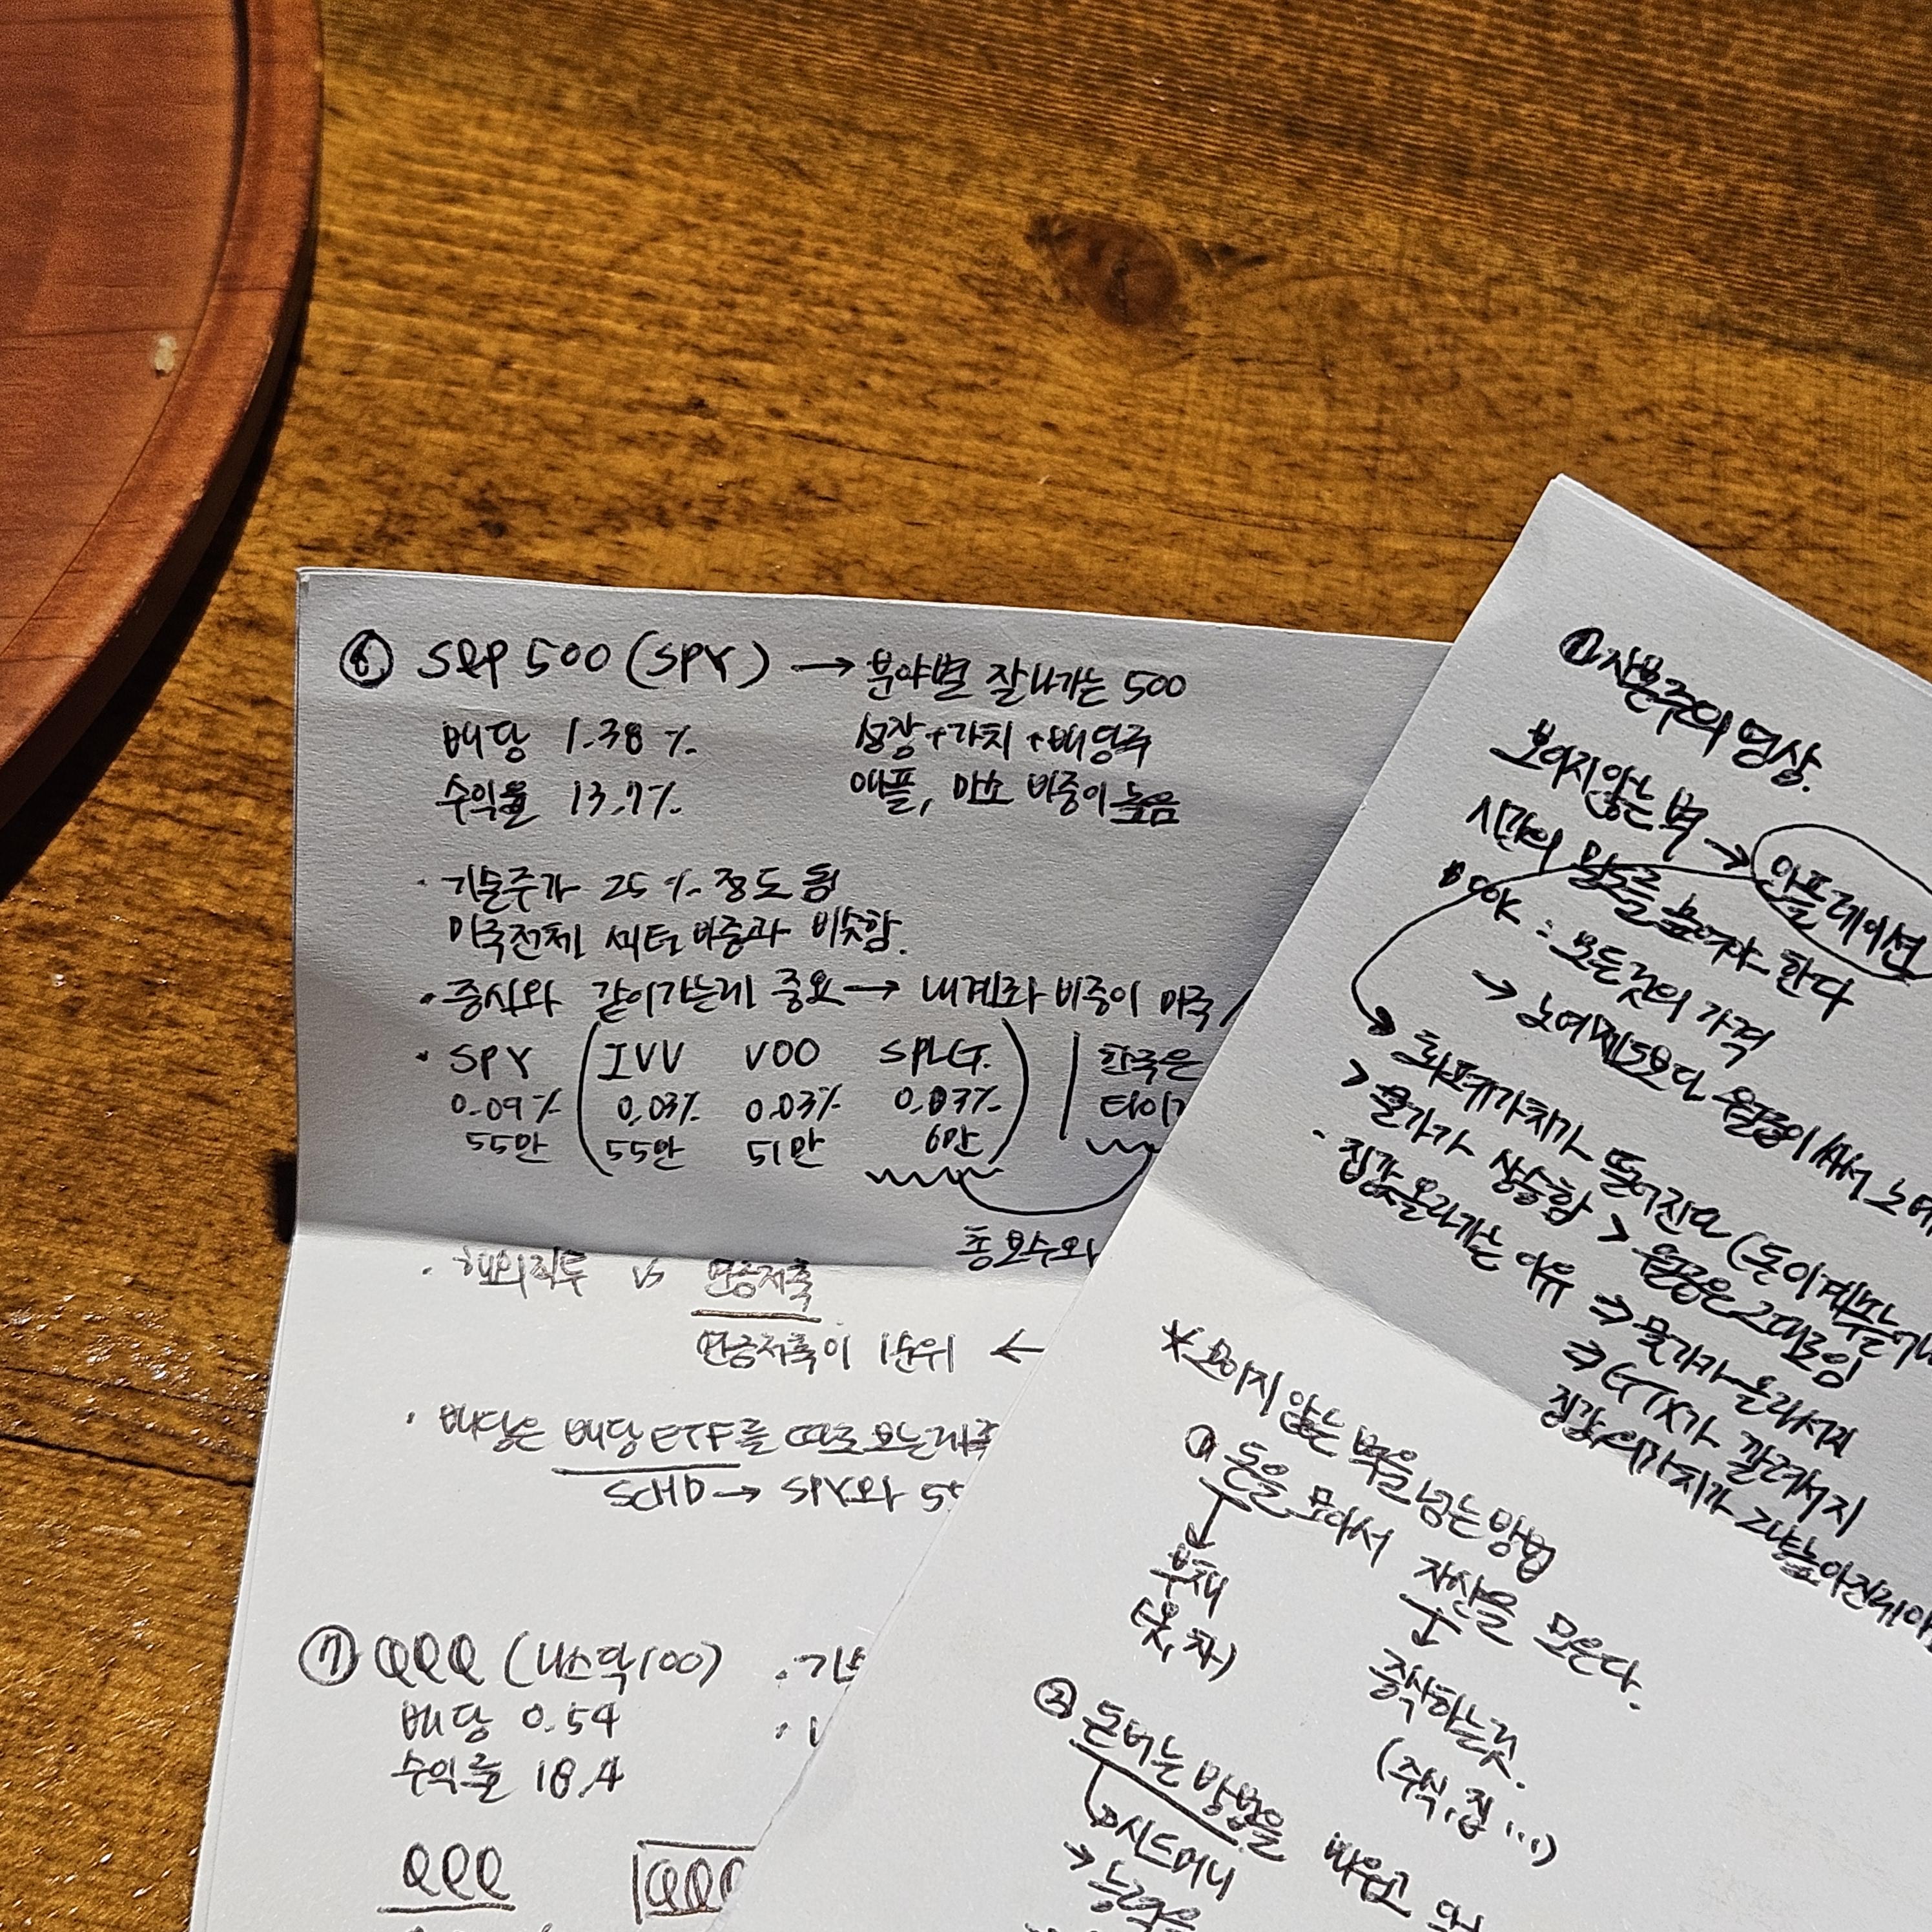 ⑥ S&P 500 (SPY) → 분야별 잘나가는 500
배당 1.38 % 성장+가치+배당주
수익율 13.7% 애플, 마소 비중이 높음
· 기술주가 25% 정도 됨
미국전체 섹터 비중과 비슷함.
· 증시와 같이가는게 중요 → 내계좌 비중이 미국
· SPY (IVV VOO SPLG.) | 한국은
0.09% 0.03% 0.03% 0.03%
55만 55만 51만 6만
총보수와
· 해외직투 vs 연금저축
연금저축이 1순위 ←
· 배당은 배당ETF를 따로 모는게
SCHD → SPY와
⑦ QQQ (나스닥100)
배당 0.54
수익률 18.4
QQQ
① 자본주의 명상.
보이지않는 벽 → 인플레이션
시간의 밀도를 높여야 한다
BOOK : 모든것의 가격
→ 노예제도보다 월급이 싸서
화폐가치가 떨어진다 (돈이 계속
> 물가가 상승함 > 월급은 그대로임
· 집값 올라가는 이유 ⇒ 물가가 올라서지
⇒ GTX가 깔려서지
* 보이지 않는 벽을 넘는 방법
① 돈을 모아서 자산을 모은다.
↓ ↓
부채 증식하는것.
(옷, 차) (주식, 집 ...)
② 돈버는 방법을 배우고
시드머니
→ 능력을